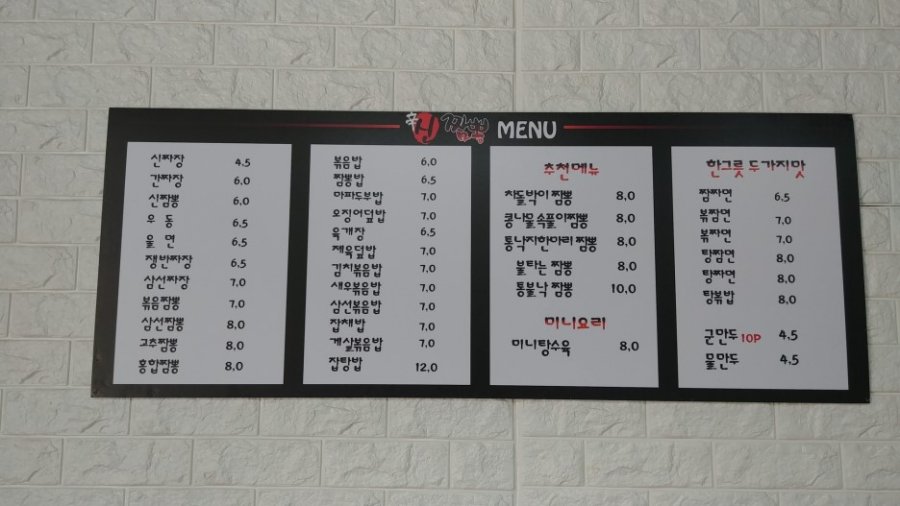 辛 신 짬뽕 MENU
신짜장 4.5
간짜장 6,0
신짬뽕 6,0
우 동 6.5
울 면 6.5
쟁반짜장 6.5
삼선짜장 7.0
볶음짬뽕 7.0
삼선짬뽕 8.0
고추짬뽕 8.0
홍합짬뽕 8.0
볶음밥 6.0
짬뽕밥 6.5
마파두부밥 7.0
오징어덮밥 7.0
육개장 6.5
제육덮밥 7.0
김치볶음밥 7.0
새우볶음밥 7.0
삼선볶음밥 7.0
잡채밥 7.0
게살볶음밥 7.0
잡탕밥 12.0
추천메뉴
차돌박이 짬뽕 8,0
콩나물속풀이짬뽕 8,0
통낙지한마리 짬뽕 8,0
불타는 짬뽕 8,0
통불낙 짬뽕 10,0
미니요리
미니탕수육 8,0
한그릇 두가지맛
짬짜면 6.5
볶짜면 7.0
볶짬면 7.0
탕짬면 8.0
탕짜면 8.0
탕볶밥 8.0
군만두 10P 4.5
물만두 4.5